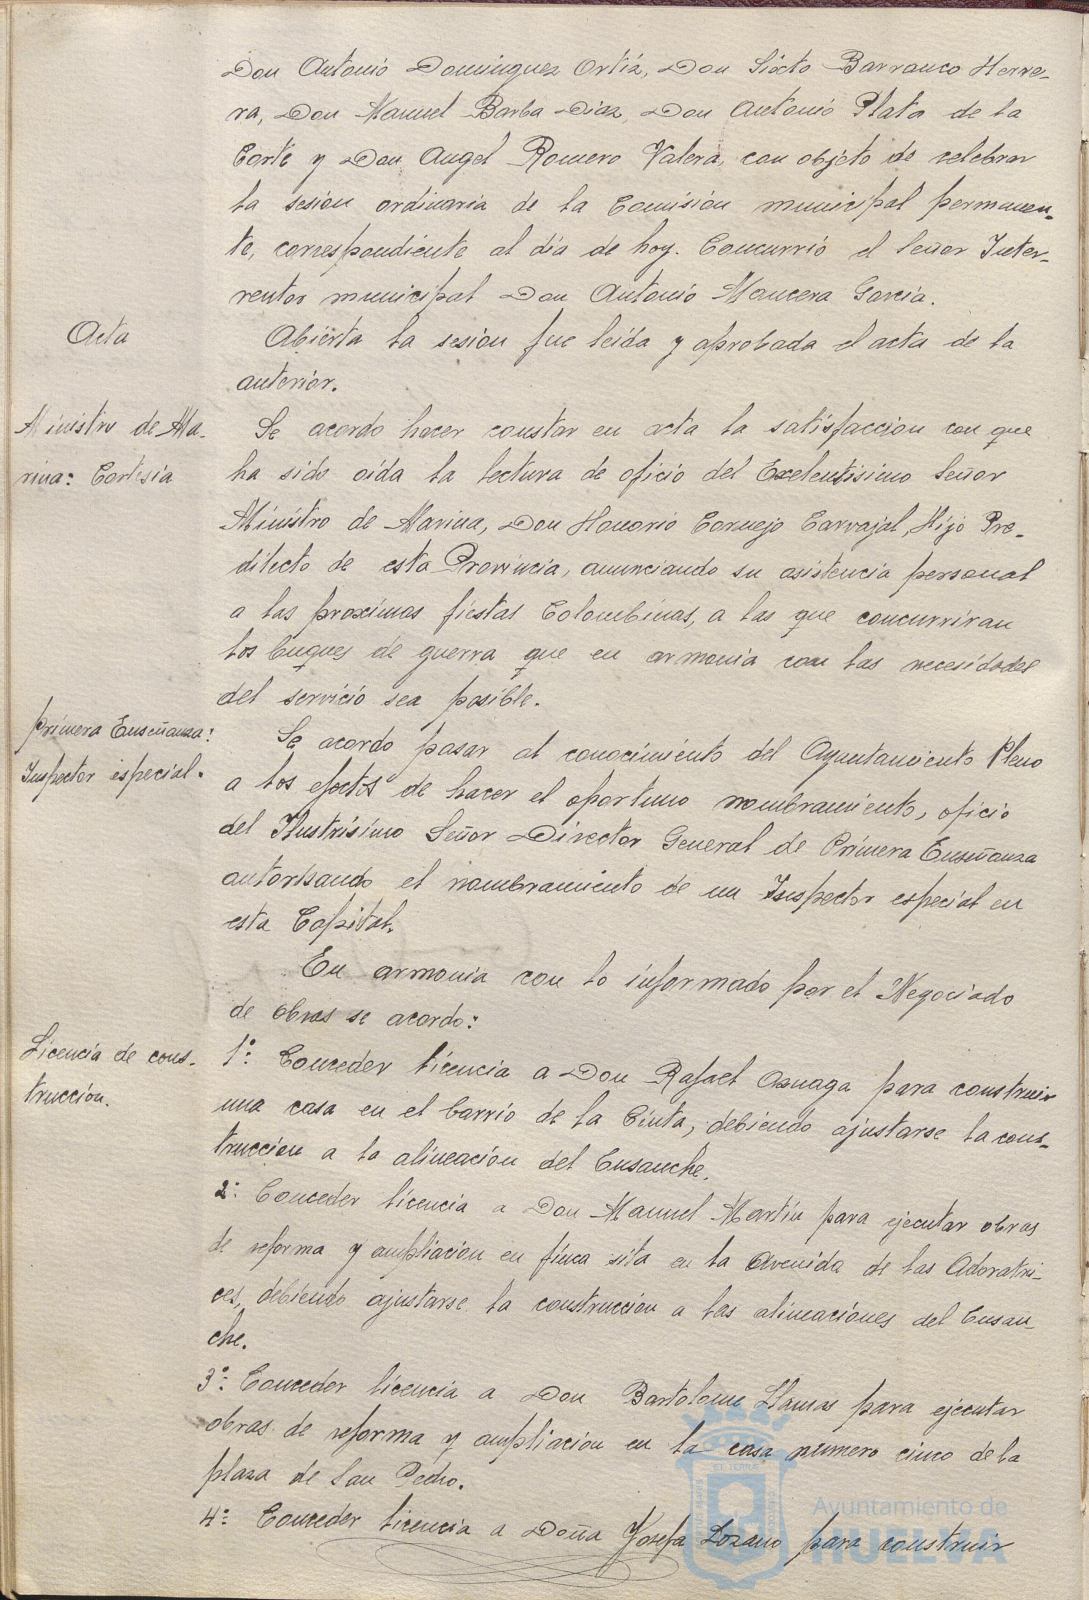 Don Antonio Dominguez Ortiz, Don Sixto Barranco Herre-
ra, Don Manuel Barba Diaz, Don Antonio Plata de la
Corte y Don Angel Romero Valera, con objeto de celebrar
la sesion ordinaria de la Comisión municipal permanen-
te, correspondiente al dia de hoy. Concurrió el Señor Inter-
ventor municipal Don Antonio Mancera Garcia.
Acta
Abierta la sesion fue leida y aprobada el acta de la
anterior.
Ministro de Ma-
rina: Cortesia
Se acordo hacer constar en acta la satisfaccion con que
ha sido oida la lectura de oficio del Exelentisimo Señor
Ministro de Marina, Don Honorio Cornejo Carvajal, Hijo Pre-
dilecto de esta Provincia, anunciando su asistencia personal
a las proximas fiestas Colombinas, a las que concurriran
los buques de guerra que en armonia con las necesidades
del servicio sea posible.
Primera Enseñanza:
Inspector especial.
Se acordo pasar al conocimiento del Ayuntamiento Pleno
a los efectos de hacer el oportuno nombramiento, oficio
del Ilustrisimo Señor Director General de Primera Enseñanza
autorisando el nombramiento de un Inspector especial en
esta Capital.
En armonia con lo informado por el Negociado
de obras se acordo:
Licencia de cons-
trucción.
1º: Conceder licencia a Don Rafael Asuaga para construir
una casa en el barrio de la Cinta, debiendo ajustarse la cons-
truccion a la alineación del Ensanche.
2º: Conceder licencia a Don Manuel Martin para ejecutar obras
de reforma y ampliacion en finca sita en la Avenida de las Adoratri-
ces, debiendo ajustarse la construccion a las alineaciones del Ensan-
che.
3º: Conceder licencia a Don Bartolome Llamas para ejecutar
obras de reforma y ampliacion en la casa numero cinco de la
plaza de San Pedro.
4º: Conceder licencia a Doña Josefa Lozano para construir
Ayuntamiento de
HUELVA